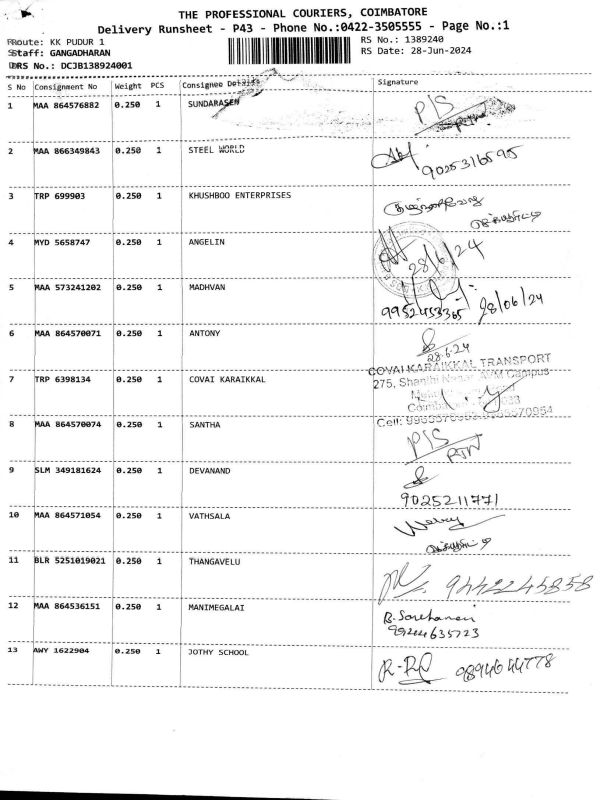 THE PROFESSIONAL COURIERS, COIMBATORE
Delivery Runsheet - P43 - Phone No.:0422-3505555 - Page No.:1
Route: KK PUDUR 1
RS No.: 1389240
Staff: GANGADHARAN
RS Date: 28-Jun-2024
DRS No.: DCJB138924001
S No Consignment No Weight PCS Consignee Details Signature
1 MAA 864576882 0.250 1 SUNDARASEN P/S
2 MAA 866349843 0.250 1 STEEL WORLD 9025316595
3 TRP 699903 0.250 1 KHUSHBOO ENTERPRISES
4 MYD 5658747 0.250 1 ANGELIN 28/6/24
5 MAA 573241202 0.250 1 MADHVAN 9952453365 28/06/24
6 MAA 864570071 0.250 1 ANTONY 28.6.24
7 TRP 6398134 0.250 1 COVAI KARAIKKAL
COVAI KARAIKKAL TRANSPORT
275, Shanthi Nagar AVM Campus
Cell:
8 MAA 864570074 0.250 1 SANTHA P/S RTN
9 SLM 349181624 0.250 1 DEVANAND 9025211771
10 MAA 864571054 0.250 1 VATHSALA
11 BLR 5251019021 0.250 1 THANGAVELU 9442245858
12 MAA 864536151 0.250 1 MANIMEGALAI
13 AWY 1622904 0.250 1 JOTHY SCHOOL 9894644778